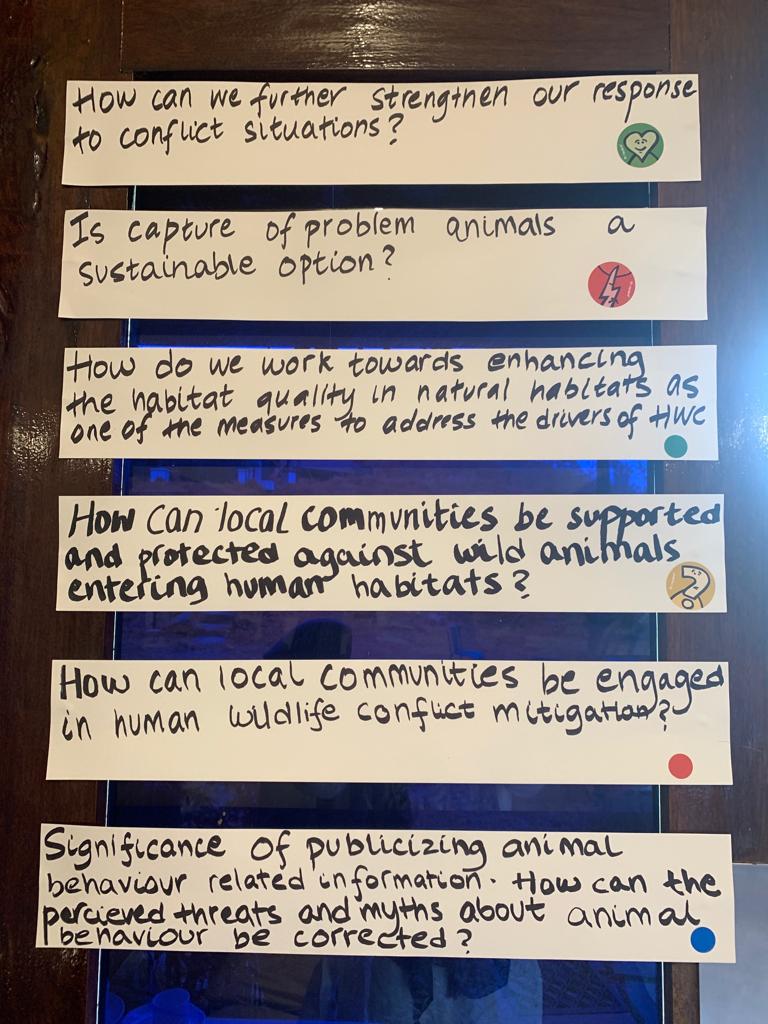 How can we further strengthen our response
to conflict situations?
Is capture of problem animals a
sustainable option?
How do we work towards enhancing
the habitat quality in natural habitats as
one of the measures to address the drivers of HWC
How can local communities be supported
and protected against wild animals
entering human habitats?
How can local communities be engaged
in human wildlife conflict mitigation?
Significance of publicizing animal
behaviour related information. How can the
percieved threats and myths about animal
behaviour be corrected?